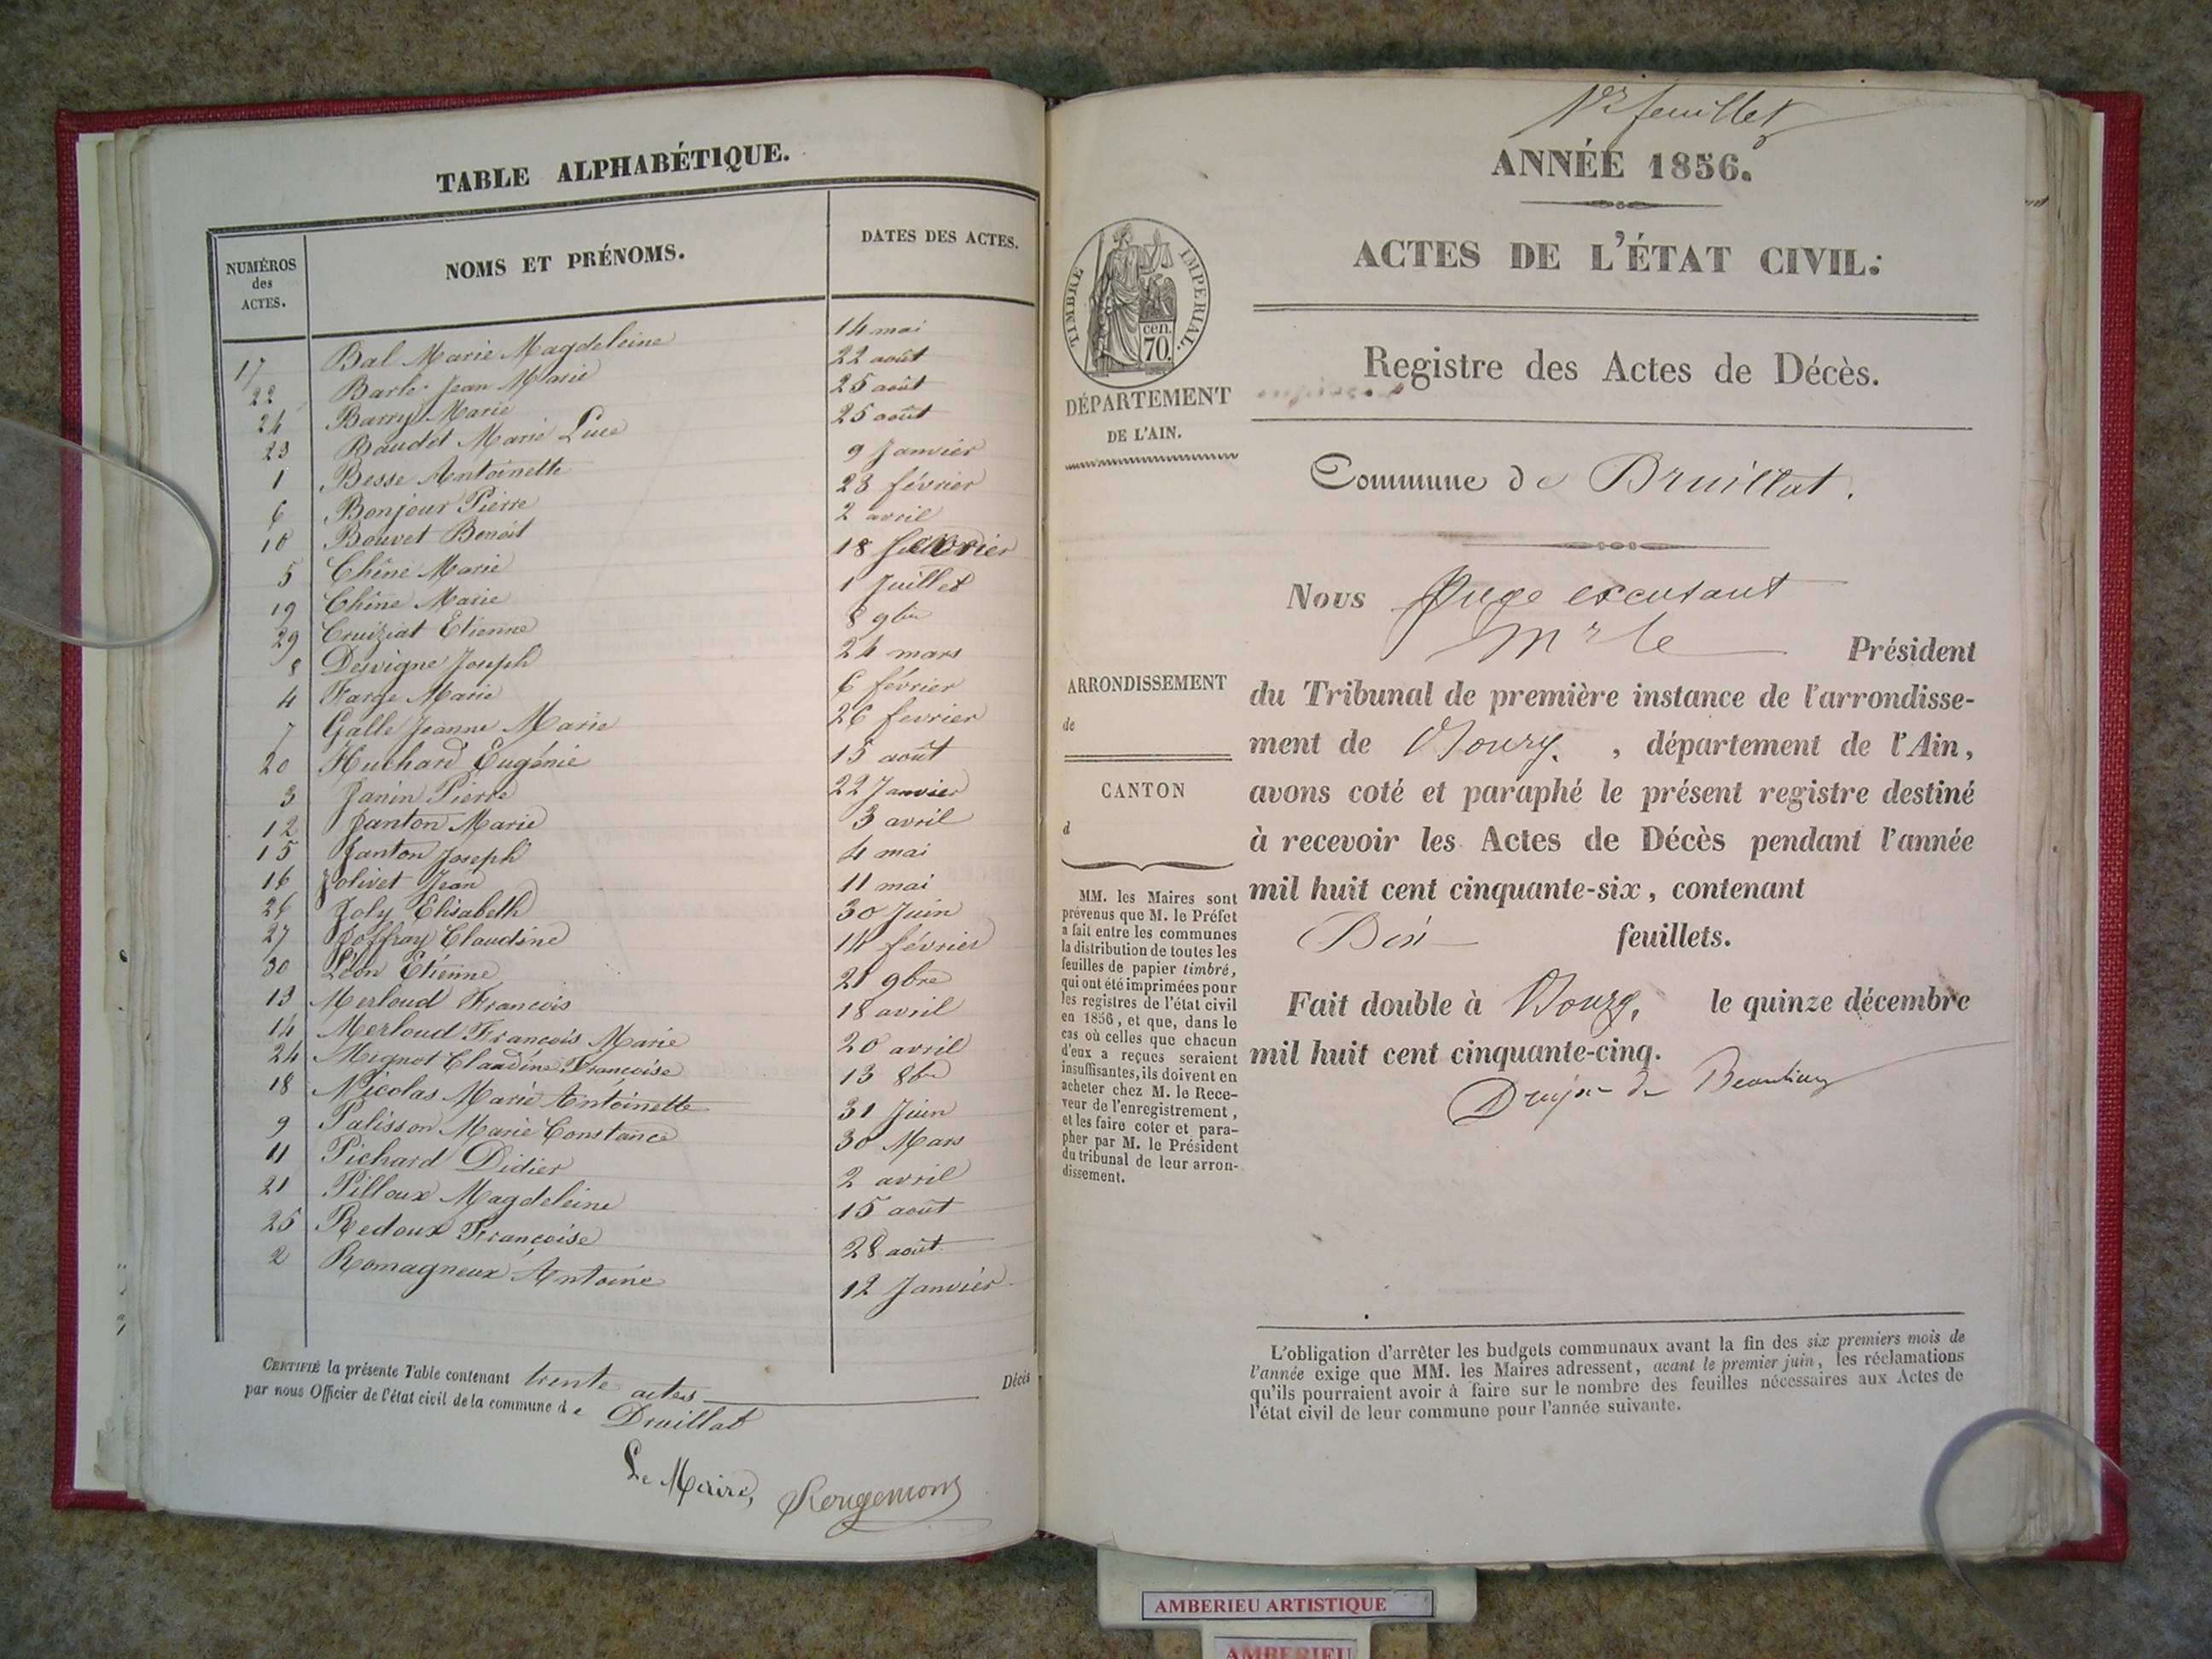 TABLE ALPHABÉTIQUE.
NUMÉROS des ACTES.
NOMS ET PRÉNOMS.
DATES DES ACTES.
17 Bal Marie Magdeleine 14 mai
22 Barle Jean Marie 22 août
24 Barry Marie 25 août
23 Baudet Marie Luce 25 août
1 Besse Antoinette 9 Janvier
6 Bonjour Pierre 23 février
10 Bouvet Benoit 2 avril
5 Chêne Marie 18 fevrier
19 Chêne Marie 1 Juillet
29 Cruiziat Etienne 8 9bre
8 Desvigne Joseph 24 mars
4 Farge Marie 6 février
7 Galle Jeanne Marie 26 fevrier
20 Huchard Eugénie 15 août
3 Janin Pierre 22 Janvier
12 Janton Marie 3 avril
15 Janton Joseph 4 mai
16 Jolivet Jean 11 mai
26 Joly Elisabeth 30 Juin
27 Joffray Claudine 14 février
30 Léon Etienne 21 9bre
13 Merloud François 18 avril
14 Merloud François Marie 20 avril
24 Mignot Claudine Françoise 13 8bre
18 Nicolas Marie Antoinette 31 Juin
9 Palisson Marie Constance 30 Mars
11 Pichard Didier 2 avril
21 Pilloux Magdeleine 15 août
25 Redoux Françoise 28 août
2 Romagneux Antoine 12 Janvier
CERTIFIÉ la présente Table contenant trente actes Décès
par nous Officier de l'état civil de la commune de Druillat
Le Maire, Rougemont
1er feuillet
ANNÉE 1856.
ACTES DE L'ÉTAT CIVIL:
TIMBRE IMPERIAL.
cen.
70.
DÉPARTEMENT
DE L'AIN.
Registre des Actes de Décès.
Commune de Druillat.
Nous Juge excusant
Mr le Président
ARRONDISSEMENT
de
CANTON
d
du Tribunal de première instance de l'arrondisse-
ment de Bourg, département de l'Ain,
avons coté et paraphé le présent registre destiné
à recevoir les Actes de Décès pendant l'année
mil huit cent cinquante-six, contenant
Dix feuillets.
Fait double à Bourg, le quinze décembre
mil huit cent cinquante-cinq.
MM. les Maires sont
prévenus que M. le Préfet
a fait entre les communes
la distribution de toutes les
feuilles de papier timbré,
qui ont été imprimées pour
les registres de l'état civil
en 1856, et que, dans le
cas où celles que chacun
d'eux a reçues seraient
insuffisantes, ils doivent en
acheter chez M. le Rece-
veur de l'enregistrement,
et les faire coter et para-
pher par M. le Président
du tribunal de leur arron-
dissement.
L'obligation d'arrêter les budgets communaux avant la fin des six premiers mois de
l'année exige que MM. les Maires adressent, avant le premier juin, les réclamations
qu'ils pourraient avoir à faire sur le nombre des feuilles nécessaires aux Actes de
l'état civil de leur commune pour l'année suivante.
AMBERIEU ARTISTIQUE
AMBERIEU